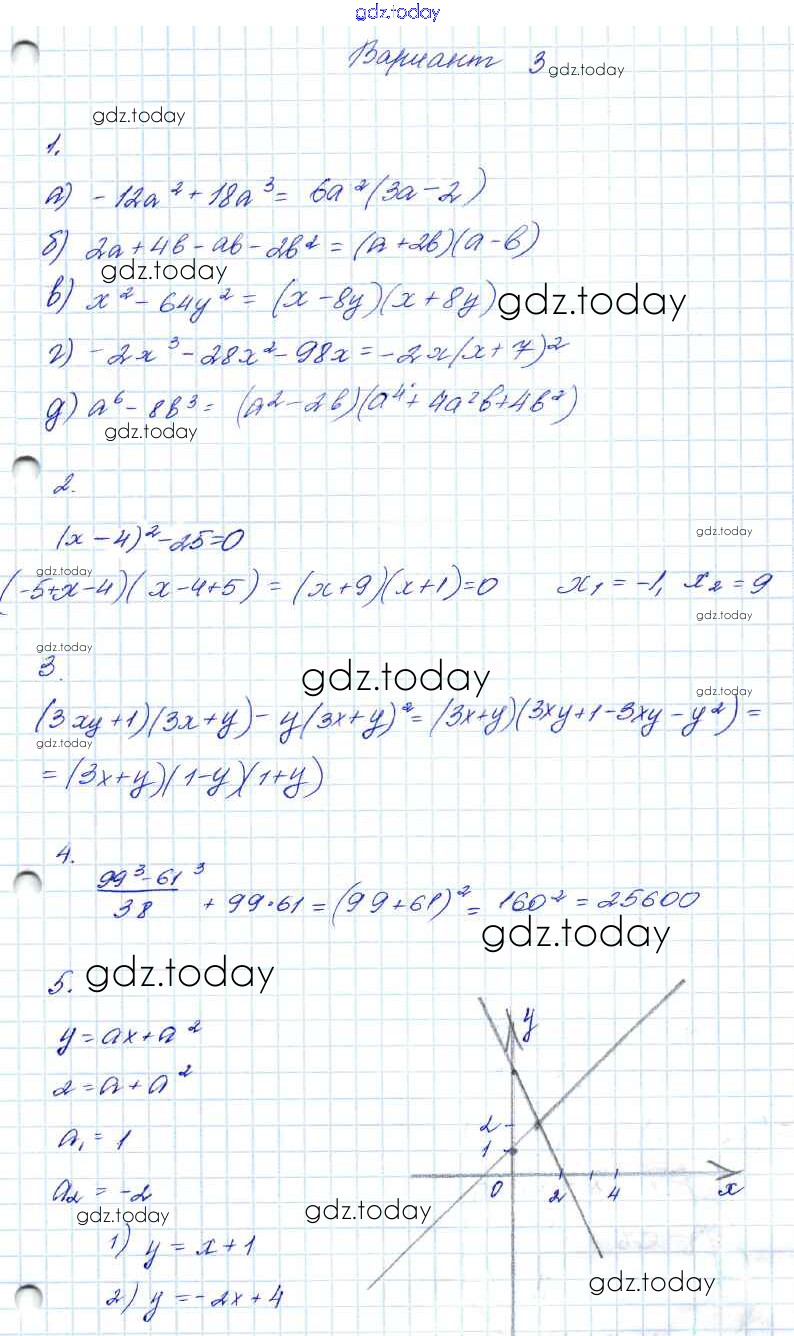 gdz.today
Вариант 3 gdz.today
gdz.today
1.
а) -12a² + 18a³ = 6a²(3a-2)
б) 2a+4b-ab-2b² = (a+2b)(a-b)
gdz.today
в) x² - 64y² = (x-8y)(x+8y) gdz.today
г) -2x³ - 28x² - 98x = -2x(x+7)²
д) a⁶ - 8b³ = (a²-2b)(a⁴+4a²b+4b²)
gdz.today
2.
(x-4)² - 25 = 0
gdz.today
gdz.today
(-5+x-4)(x-4+5) = (x+9)(x+1)=0 x₁ = -1, x₂ = 9
gdz.today
3.
gdz.today
gdz.today
gdz.today
(3xy+1)(3x+y) - y(3x+y)² = (3x+y)(3xy+1-3xy-y²) =
gdz.today
gdz.today
= (3x+y)(1-y)(1+y)
4.
(99³-61³)/38 + 99·61 = (99+61)² = 160² = 25600
gdz.today
5. gdz.today
y = ax+a²
2 = a+a²
a₁ = 1
a₂ = -2
gdz.today
1) y = x+1
2) y = -2x+4
y
2
1
0 2 4 x
gdz.today
gdz.today